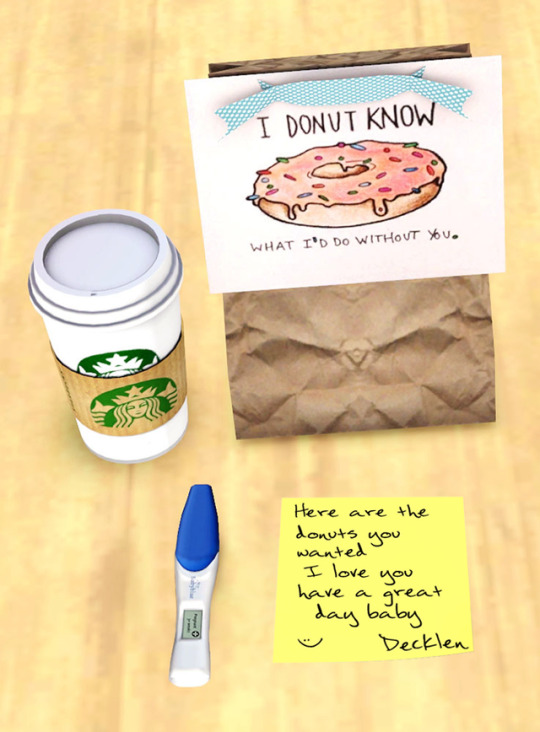 I DONUT KNOW
WHAT I'D DO WITHOUT YOU.
Here are the
donuts you
wanted
I love you
have a great
day baby
Decklen
Pregnant